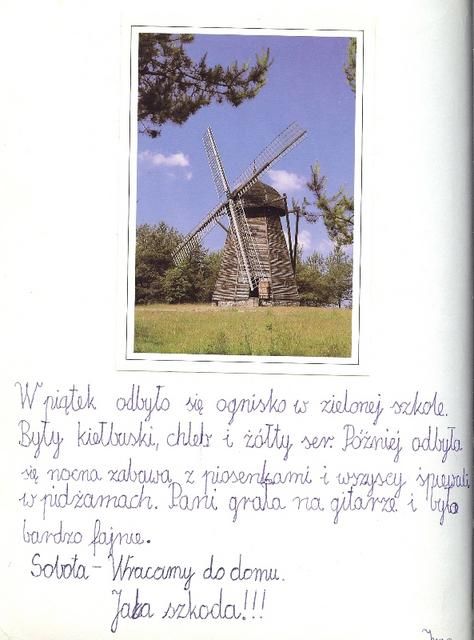 W piątek odbyło się ognisko w zielonej szkole.
Były kiełbaski, chleb i żółty ser. Później odbyła
się nocna zabawa z piosenkami i wszyscy śpiewali
w pidżamach. Pani grała na gitarze i było
bardzo fajnie.
Sobota - Wracamy do domu.
Jaka szkoda!!!